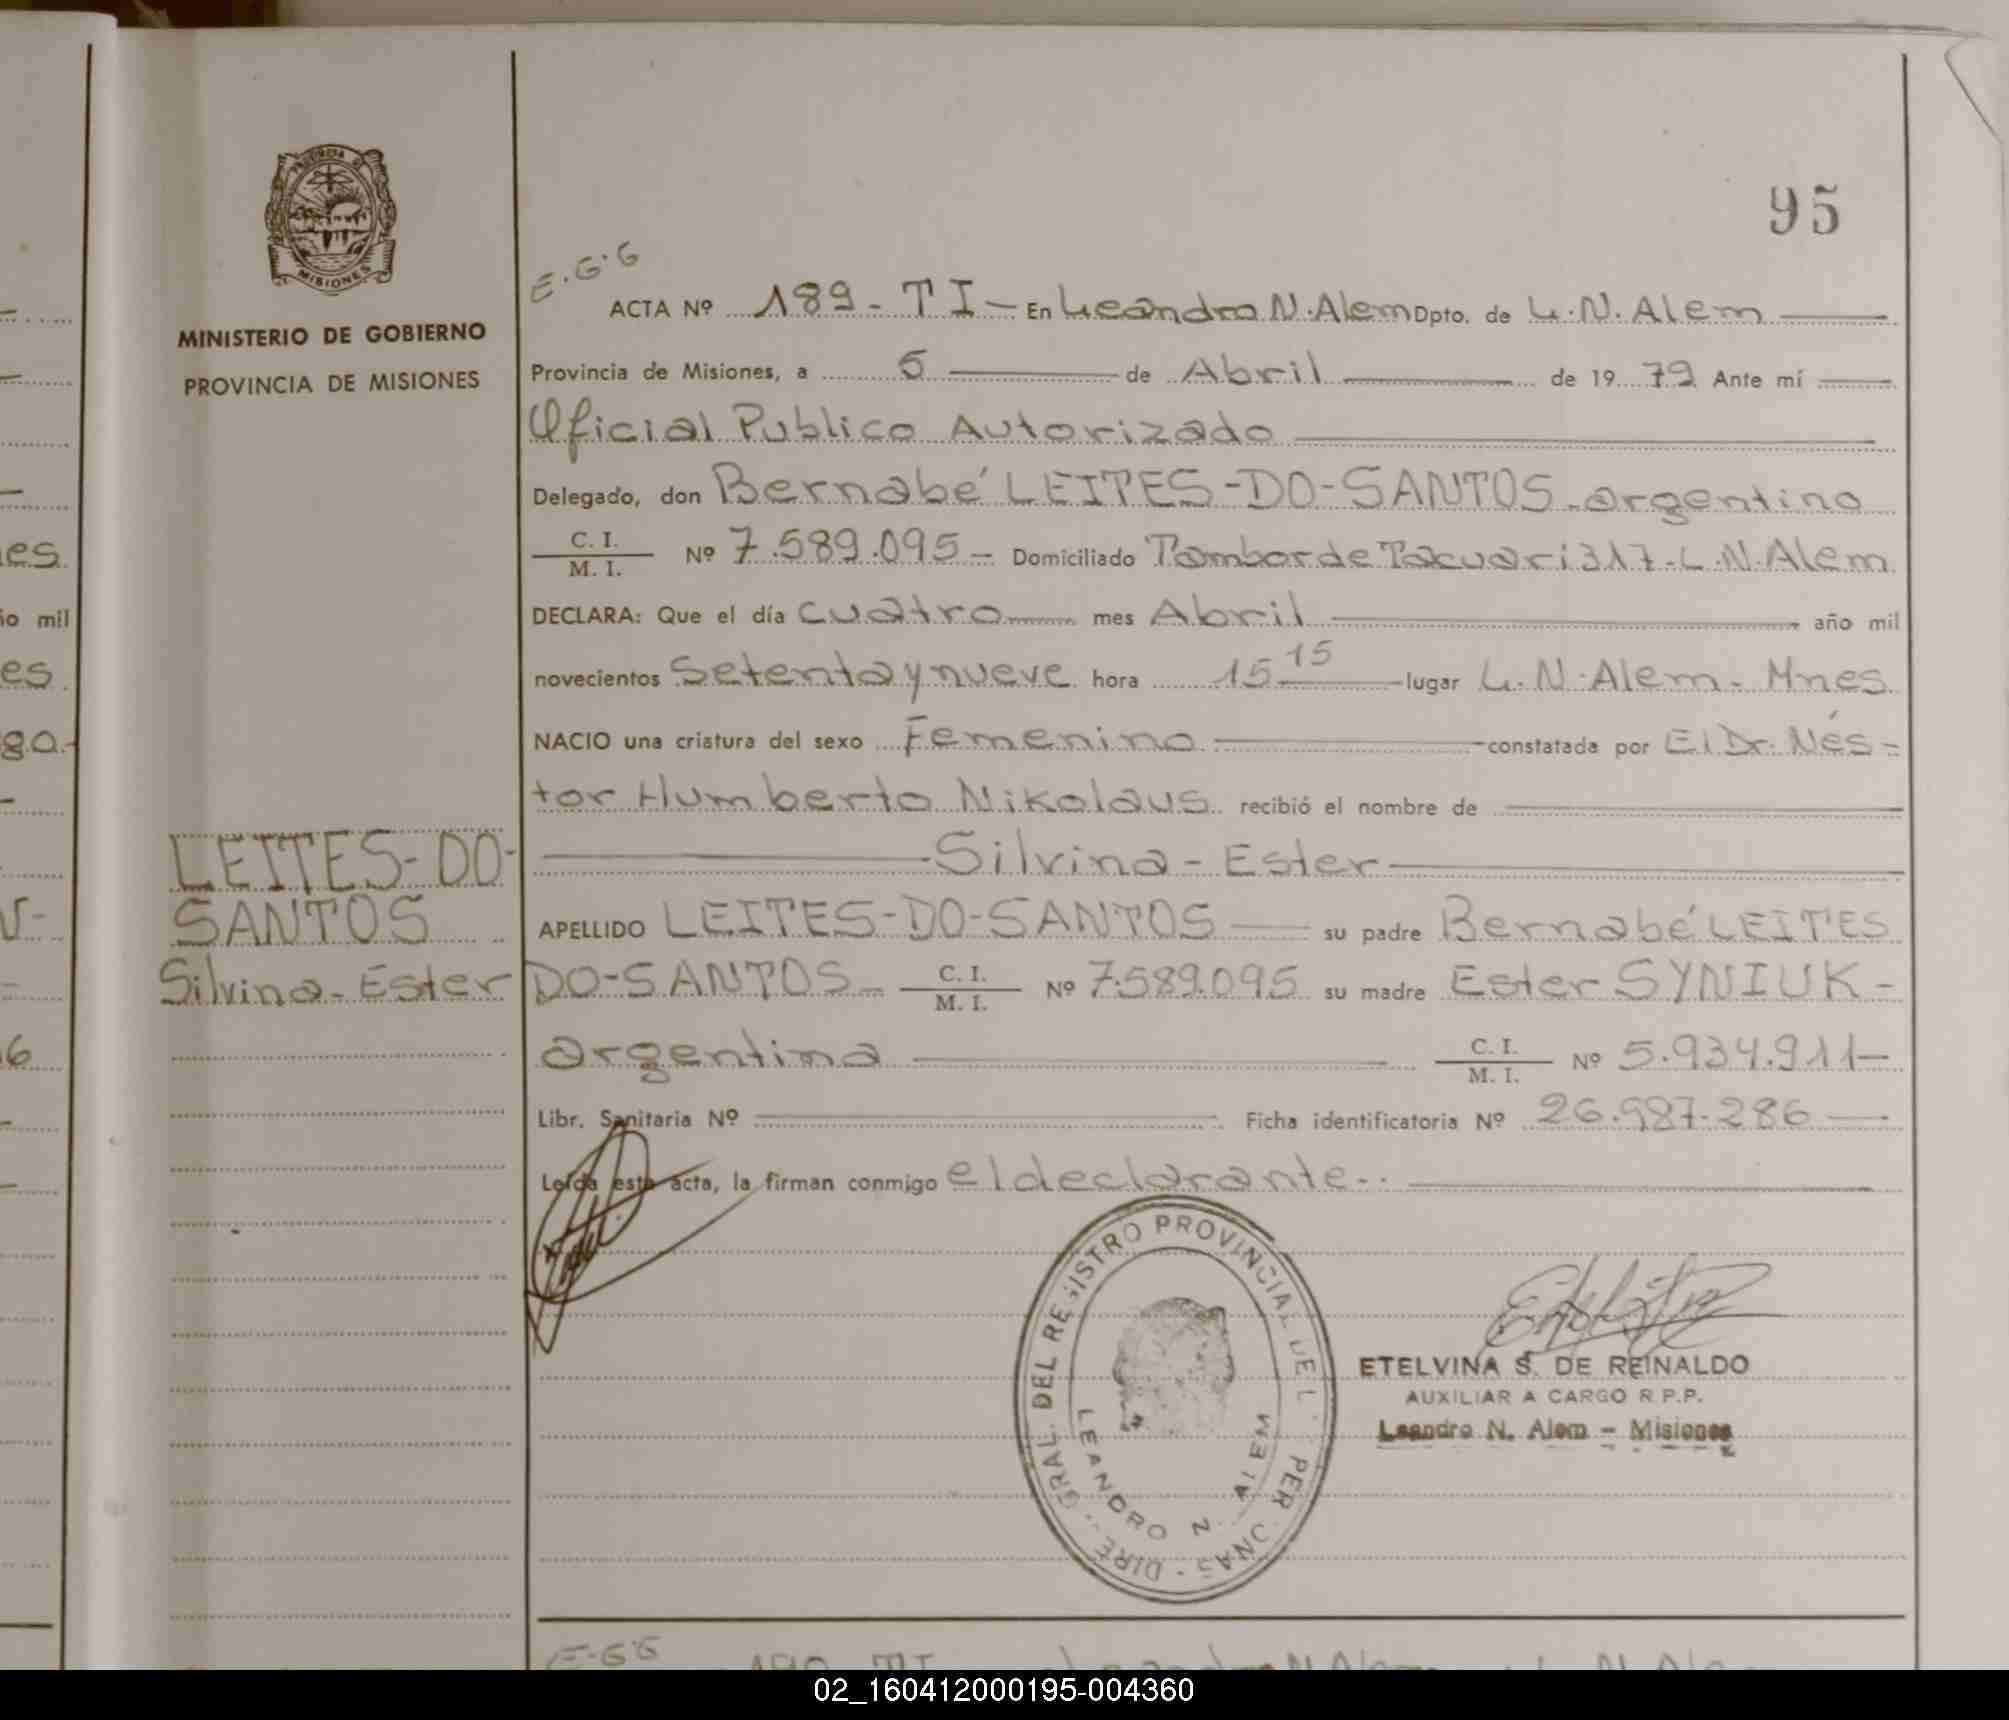 PROVINCIA DE
MISIONES
MINISTERIO DE GOBIERNO
PROVINCIA DE MISIONES
95
E.G.G
ACTA Nº 189 - T I - En Leandro N. Alem Dpto. de L. N. Alem
Provincia de Misiones, a 5 de Abril de 1979 Ante mí
Oficial Publico Autorizado
Delegado, don Bernabé LEITES-DO-SANTOS - argentino
C. I.
M. I. Nº 7.589.095 - Domiciliado Tambor de Tacuari 317 - L. N. Alem
DECLARA: Que el día cuatro mes Abril año mil
novecientos Setenta y nueve hora 15 15 lugar L. N. Alem - Mnes
NACIO una criatura del sexo Femenino constatada por El Dr. Nés-
tor Humberto Nikolaus recibió el nombre de
Silvina - Ester
LEITES-DO-
SANTOS
Silvina - Ester
APELLIDO LEITES-DO-SANTOS su padre Bernabé LEITES
DO-SANTOS C. I.
M. I. Nº 7.589.095 su madre Ester SYNIUK -
argentina C. I.
M. I. Nº 5.934.911-
Libr. Sanitaria Nº Ficha identificatoria Nº 26.987.286
Leída esta acta, la firman conmigo el declarante..
DEL REGISTRO PROVINCIAL DE L PER ONAS - DIRE GRAL.
LEANDRO N. ALEM
ETELVINA S. DE REINALDO
AUXILIAR A CARGO R.P.P.
Leandro N. Alem - Misiones
E-GG
es.
io mil
es.
go.-
N-
6
02_160412000195-004360